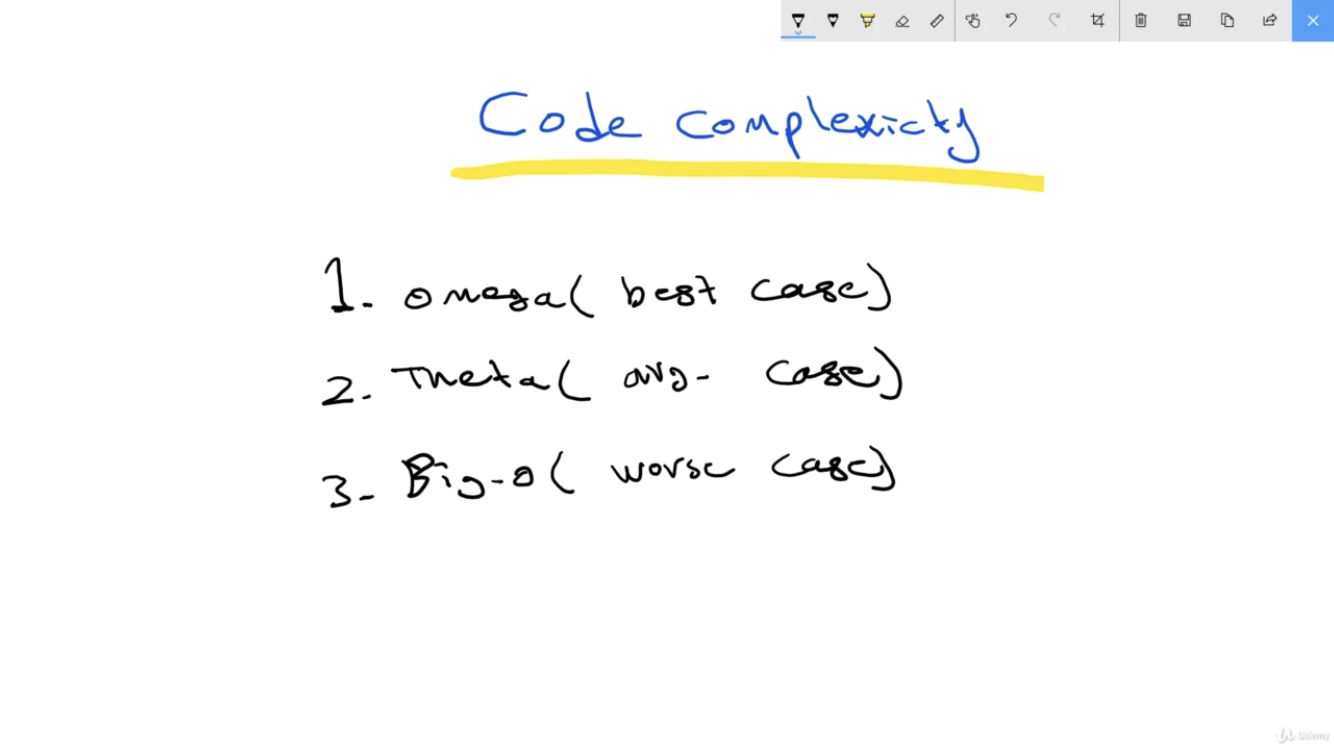 Code complexicty
1. omega( best case)
2. Theta( avg- case)
3- Big-o( worse case)
Udemy